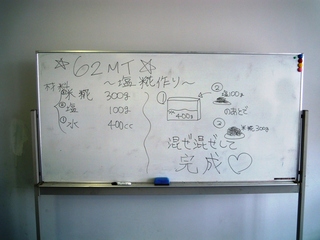 ☆62MT☆
〜塩糀作り〜
材料
米糀 300g
② 塩 100g
① 水 400cc
①
400g
② 塩100g
のあとで
② 米糀300g
混ぜ混ぜして
完成♡